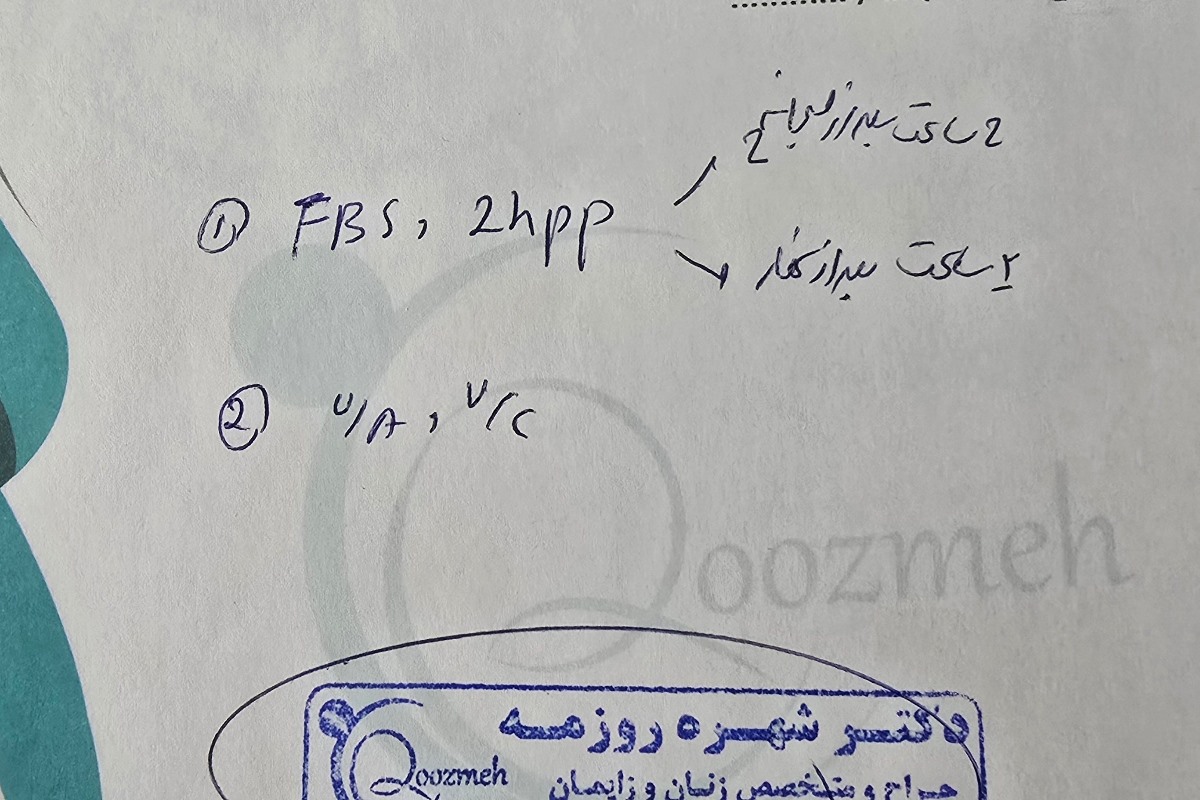 2 ساعت بعد از صبحانه
① FBS, 2hpp
۲ ساعت بعد از نهار
② U/A, U/C
Qoozmeh
دکتر شهره روزمه
Qoozmeh
جراح و متخصص زنان و زایمان